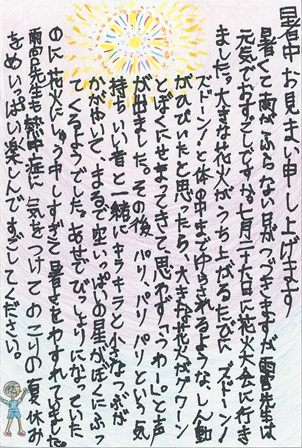 暑中お見まい申し上げます
暑くて雨がふらない日がつづきますが雨宮先生は
元気でおすごしですか。七月二十九日に花火大会に行き
ました。大きな花火がうち上がるたびに、ズドーン！
ズドーン！と体の中までゆらされるような、しん動
がひびいたと思ったら、大きな花火がグワーン
とぼくにせまってきて思わず「うわー！」と声
が出ました。その後、パリ、パリ、パリという気
持ちいい音と一緒にキラキラと小さなつぶが
かがやいて、まるで空いっぱいの星がぼくにふっ
てくるようでした。あせでびっしょりになっていた
のに花火にしゅう中しすぎて暑さをわすれてました。
雨宮先生も熱中症に気をつけてのこりの夏休み
をめいっぱい楽しんですごしてください。